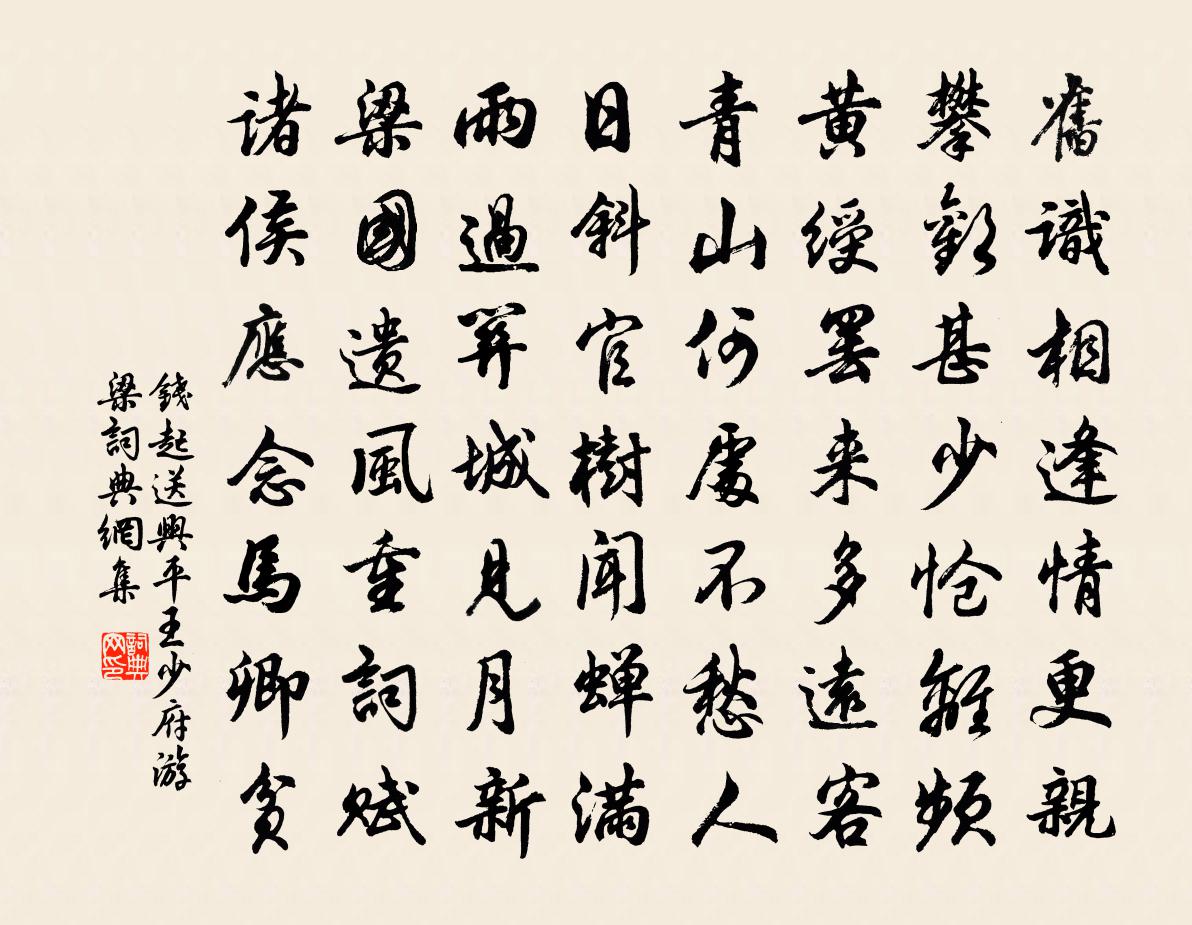 舊識相逢情更親
攀歡甚少愴離頻
黄綬罷来多遠客
青山何處不愁人
日斜官樹聞蟬滿
雨過關城見月新
梁國遺風重詞賦
諸侯應念馬卿貧
錢起送興平王少府游
梁詞典網集
詞典
网印